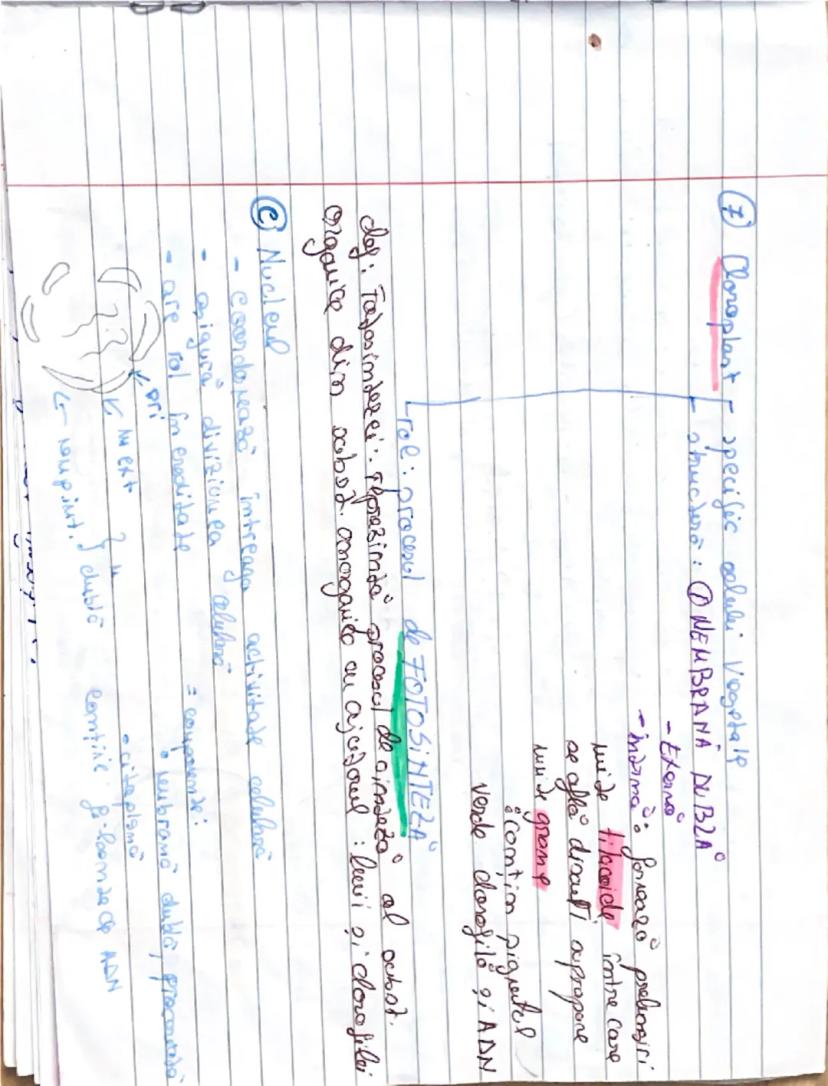 ⑦ Cloroplast - specific celulei vegetale
- structură: ① MEMBRANĂ DUBLĂ
- Externă
- internă: formează prelungiri
tilacoide între care
se află discuri suprapuse
grane
conțin pigmentul
verde clorofilă și ADN
- rol: procesul de FOTOSINTEZĂ
def: Fotosintezei: reprezintă procesul de sinteză al subst.
organice din subst. anorganice cu ajutorul: luminii și clorofilei
Ⓒ Nucleul
- coordonează întreaga activitate celulară
- asigură diviziunea celulară
- are rol în ereditate
= componente:
membrană dublă,
- citoplasmă
pori
dublă conține ADN